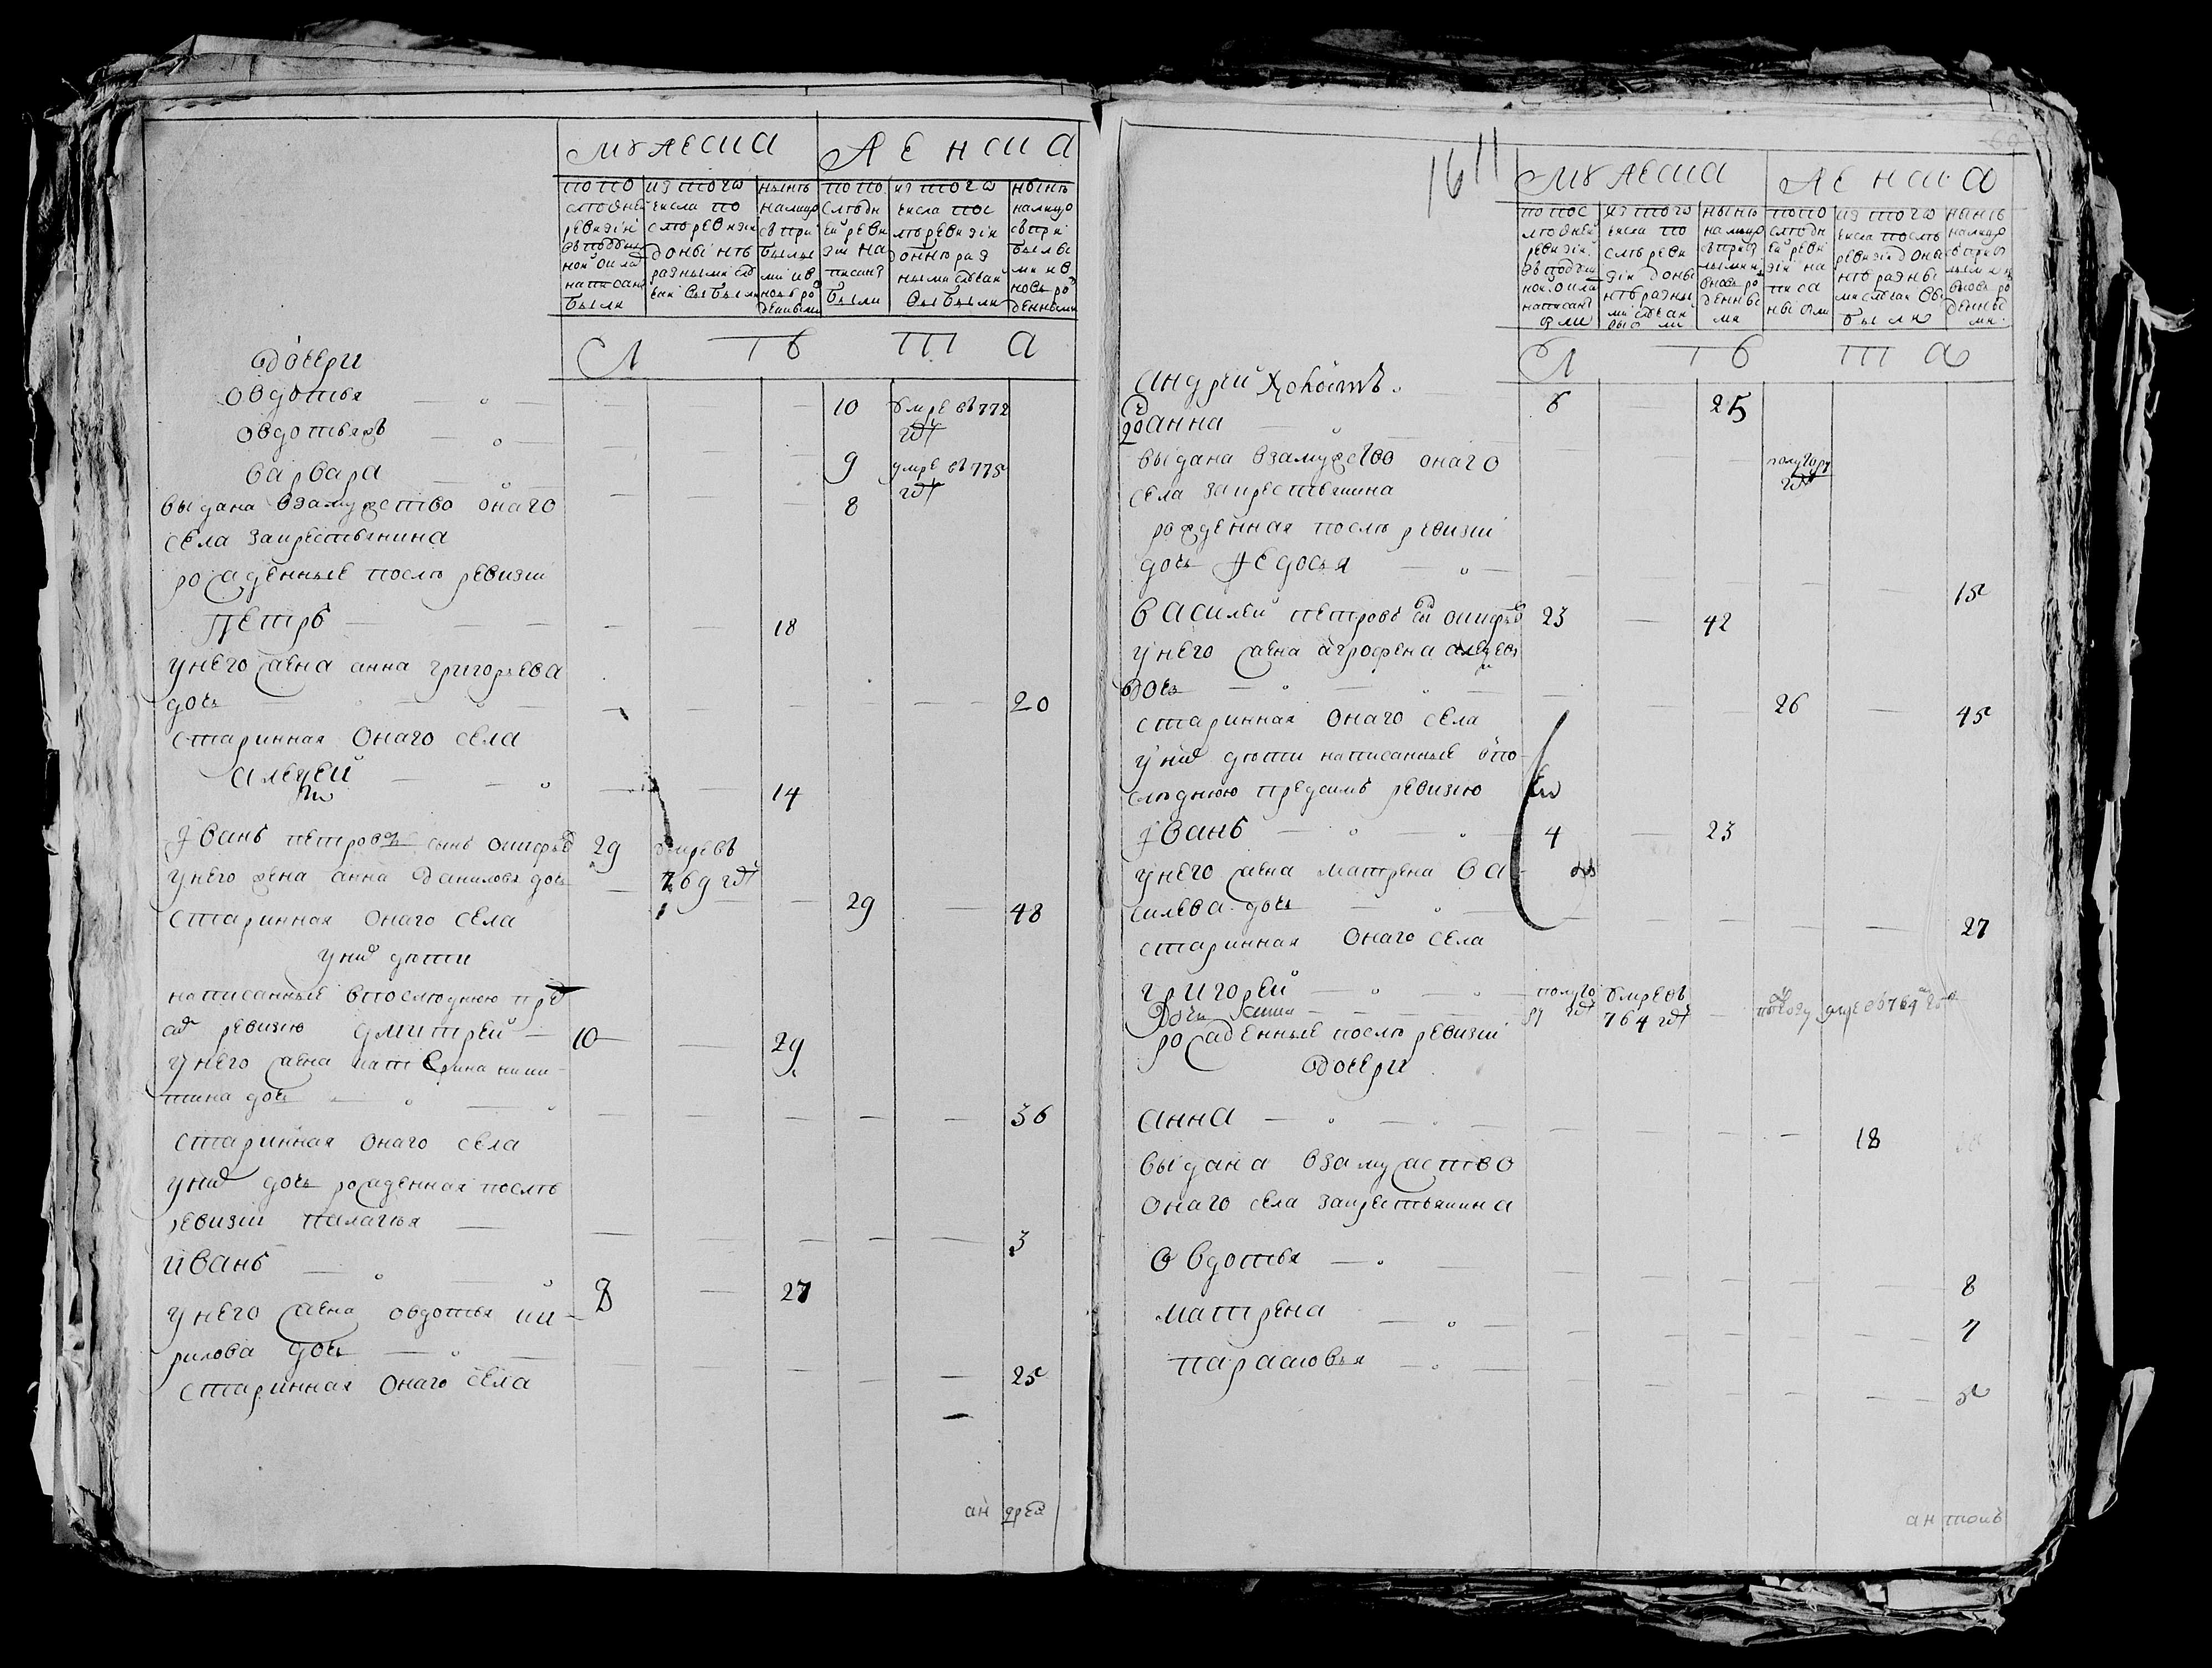 мужеска
женска
по по
следней
ревизiи
въ подуш
ной окла
написан
были
из того
числа по
сле ревизiи
до ныне
разными слу
чаи выбыли
ныне
налицо
съ при
былы
ми и в
новь ро
денными
по по
следн
ей реви
зiи на
писан
были
из того
числа пос
ле ревизiи
до ныне раз
ными случаи
выбыли
ныне
налицо
съ при
былы
ми и в
новь ро
денными
л ѣ т а
дочери
овдотья 10 умре въ 772
год
овдотья ж 9 умре въ 775
год
варвара 8
выдана взамужство онаго
села за крестьянина
рожденные после ревизiи
петръ 18
у него жена анна григорьева
дочь 20
старинная онаго села
алексей 14
Iванъ петровъ сынъ 29 умре въ
769 год
у него жена анна данилова дочь 29 48
старинная онаго села
у них дети
написанные в последнюю пред
сим ревизию дмитрей 10 29
у него жена катерина ники
тина дочь 36
старинная онаго села
у них дочь рожденная после
ревизiи пилагья 3
иванъ 8 27
у него жена овдотья ки
рилова дочь 25
старинная онаго села
андрей
1611
мужеска
женска
по пос
ледней
ревизiи
въ подуш
ной окла
написан
были
из того
числа по
сле реви
зiи до ны
не разны
ми случаи
выбыли
ныне
налицо
съ при
былыми
вновь ро
денны
ми
по по
следн
ей реви
зiи на
писа
ны были
из того
числа после
ревизiи до ны
не разны
ми случаи вы
были
ныне
налицо
съ при
былыми
вновь ро
денны
ми
л ѣ т а
андрей холостъ 6 25
дo анна полутору
год
выдана взамужство онаго
села за крестьянина
рожденная после ревизiи
дочь федосья 15
василей петровъ 23 42
у него жена агрофена алексеева
дочь 26 45
старинная онаго села
у них дети написанные в по
следнюю пред симъ ревизiю
Iванъ 4 23
у него жена матрена ва
сильева дочь 27
старинная онаго села
григорей полуто
ру год умре въ
764 год
рожденные после ревизiи
дочери
анна 18
выдана взамужство
онаго села за крестьянина
овдотья 8
матрена 7
парасковья 5
антонъ